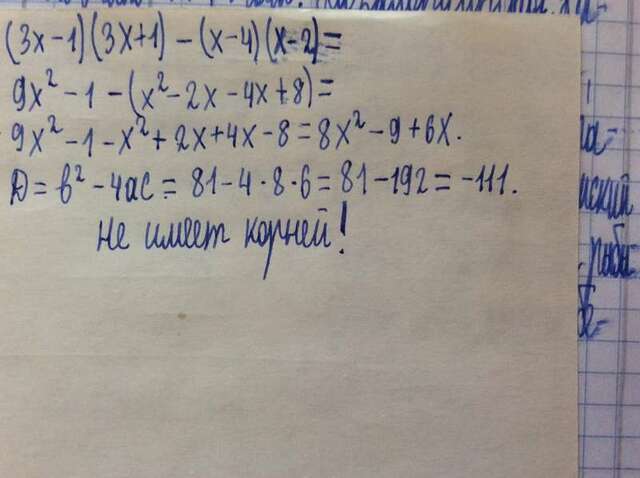 (3x-1)(3x+1)-(x-4)(x-2)=
9x²-1-(x²-2x-4x+8)=
9x²-1-x²+2x+4x-8=8x²-9+6x.
D=b²-4ac=81-4·8·6=81-192=-111.
Не имеет корней!